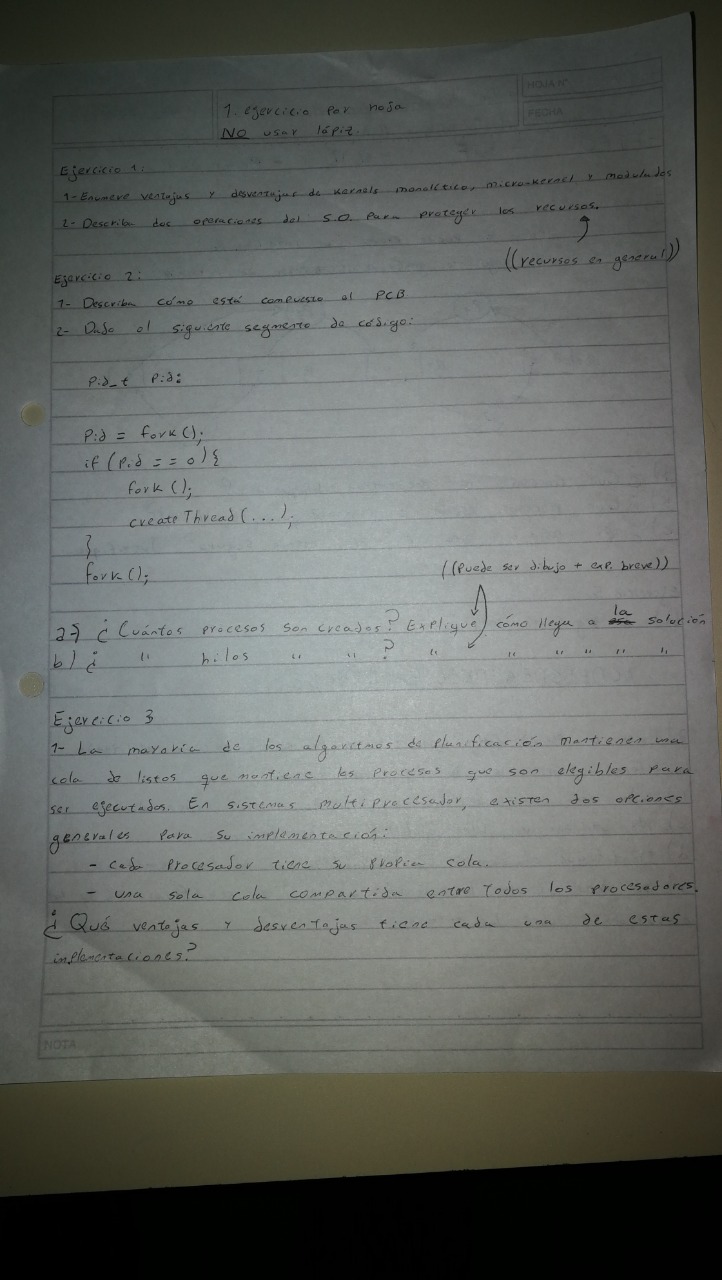 HOJA Nº
FECHA
1. ejercicio por hoja
NO usar lápiz.
Ejercicio 1:
1- Enumere ventajas y desventajas de kernels monolítico, micro-kernel y modulados
2- Describa dos operaciones del S.O. para proteger los recursos.
((recursos en general))
Ejercicio 2:
1- Describa cómo está compuesto el PCB
2- Dado el siguiente segmento de código:
pid_t pid;
pid = fork();
if (pid == 0){
fork();
createThread(...);
}
fork();
((Puede ser dibujo + exp. breve))
a) ¿Cuántos procesos son creados? Explique cómo llega a la solución
b) ¿ " hilos " " ? " " " " " "
Ejercicio 3
1- La mayoría de los algoritmos de planificación mantienen una
cola de listos que mantiene los procesos que son elegibles para
ser ejecutados. En sistemas multiprocesador, existen dos opciones
generales para su implementación:
- cada procesador tiene su propia cola.
- una sola cola compartida entre todos los procesadores.
¿Qué ventajas y desventajas tiene cada una de estas
implementaciones?
NOTA